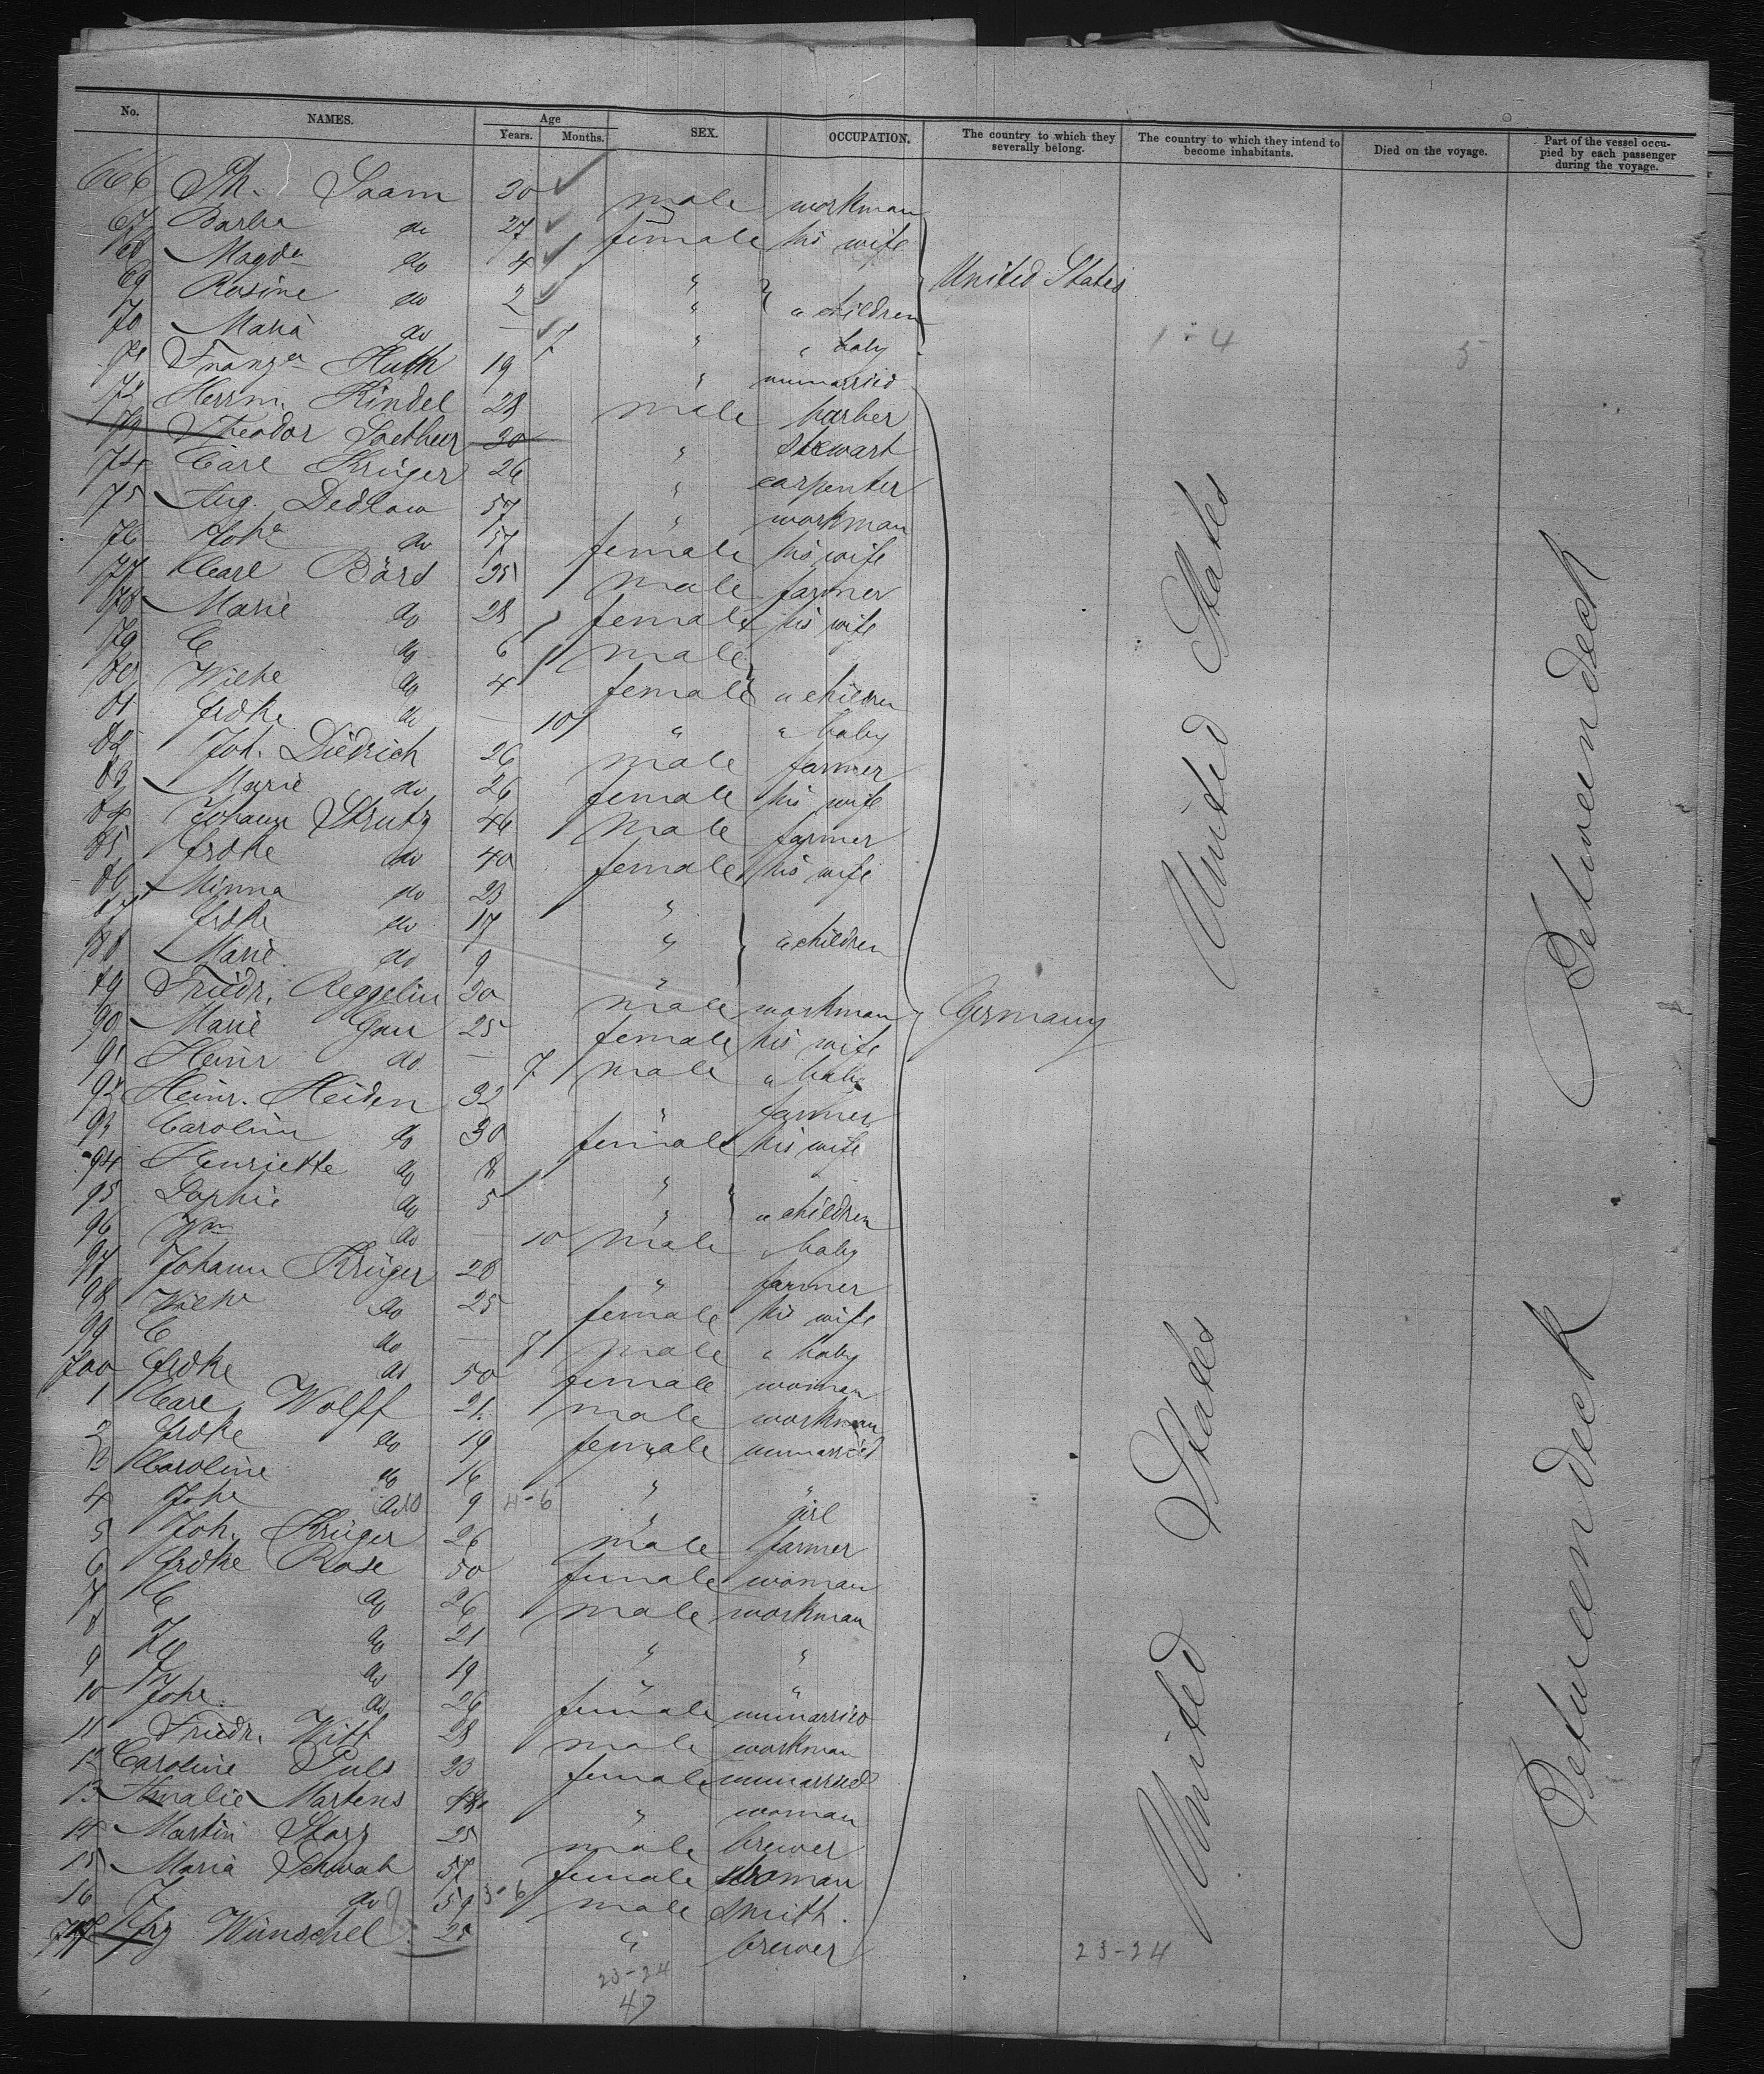 No. NAMES. Age Years. Months. SEX. OCCUPATION. The country to which they severally belong. The country to which they intend to become inhabitants. Died on the voyage. Part of the vessel occupied by each passenger during the voyage.
666 Ph. Saam 30 male workman
67 Barba do 27 female his wife
68 Magda do 4 "
69 Rosine do 2 " " children United States
70 Maria do — 7 " " baby
71 Franza Huth 19 " unmarried
72 Herrm. Kindel 28 male barber
73 Theodor Soetbeer 30 " stewart
74 Carl Krüger 26 " carpenter
75 Aug. Dedlow 57 " workman
76 Joha do 57 female his wife
77 Carl Börs 35 male farmer
78 Marie do 28 female his wife
79 C do 6 male
80 Wilhe do 4 female " children
81 Frdke do — 10 " " baby
82 Joh. Diedrich 26 male farmer
83 Marie do 26 female his wife
84 Johann Strutz 46 male farmer
85 Frdke do 40 female his wife
86 Minna do 23 "
87 Frdke do 17 " " children
88 Marie do 9 "
89 Friedr. Reggelin 30 male workman Germany
90 Marie 25 female his wife
91 Heinr do — 7 male " baby
92 Heinr. Heiden 32 " farmer
93 Carolin do 30 female his wife
94 Henriette do 8 "
95 Sophie do 5 " " children
96 Wm do — 10 male " baby
97 Johann Krüger 28 " farmer
98 Wilhe do 25 female his wife
99 C do — 7 male " baby
700 Frdke do 50 female woman
1 Carl Wolff 21 male workman
2 Frdke do 19 female unmarried
3 Caroline do 16 " "
4 Johe do 9 4-6 " girl
5 Joh. Krüger 26 male farmer
6 Frdke Rose 50 female woman
7 C do 26 male workman
8 do 21 " "
9 do 19 " "
10 Johe. do 26 female unmarried
11 Friedr. Witt 28 male workman
12 Caroline Puls 23 female unmarried
13 Amalie Martens 48 " woman
14 Martin Starz 25 male brewer
15 Maria Schwab 57 female woman
16 J. do 59 3-6 male smith.
717 Frz Wünschel 25 " brewer
United States
United States
Between deck
Between deck
1-4
5
23-24
23-24
47